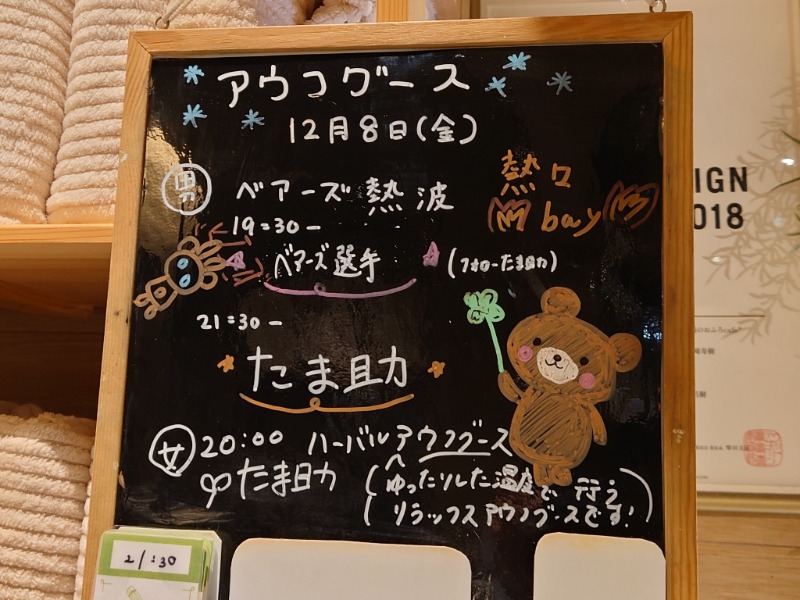 アウフグース
12月8日(金)
男 ベアーズ熱波
熱口
bay
19:30ー
ベアーズ選手
(フォローたま助)
21:30ー
たま助
女 20:00 ハーバルアウフグース
たま助
(ゆったりした温度で行う
リラックスアウフグースです!)
21:30
IGN
018